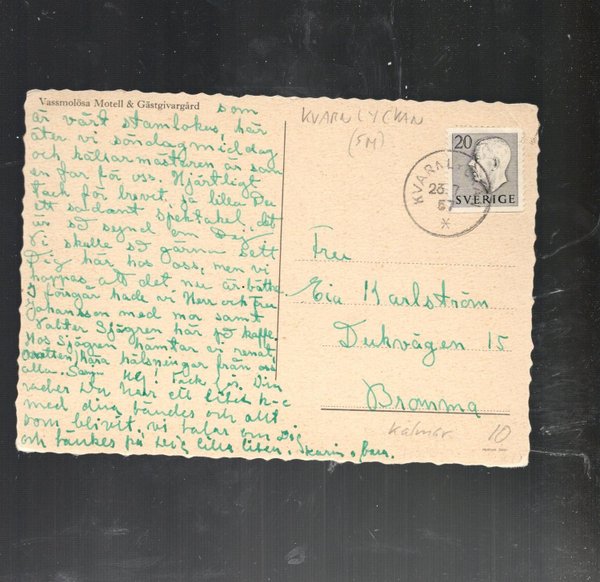 Vassmolösa Motell & Gästgivargård
som
är vårt stamlokus, här
äter vi söndagsmiddag
och källarmästeren är som
en far för oss. Hjärtligt
tack för brevet, ja lilla Du
ett sådant spektakel, det
är så synd om Dej
Vi skulle så gärna sett
Dig här hos oss, men vi
hoppas att det nu är bättre
I förrgår hade vi Herr och Fru
Johansson med mor samt
Valter Sjögren här på kaffe.
Hos Sjögren hämtar vi
vatten, kära hälsningar från oss
alla.
Din
Du har ett
med dina händer och allt
som blivit, vi talar om Dig
och tänkes på Dej, lilla liten.
KVARNLYCKAN
(SM)
20
SVERIGE
KVARNLYCKAN
23.7
57
Fru
Karlström
Dukvägen 15
Bromma
Kalmar
10